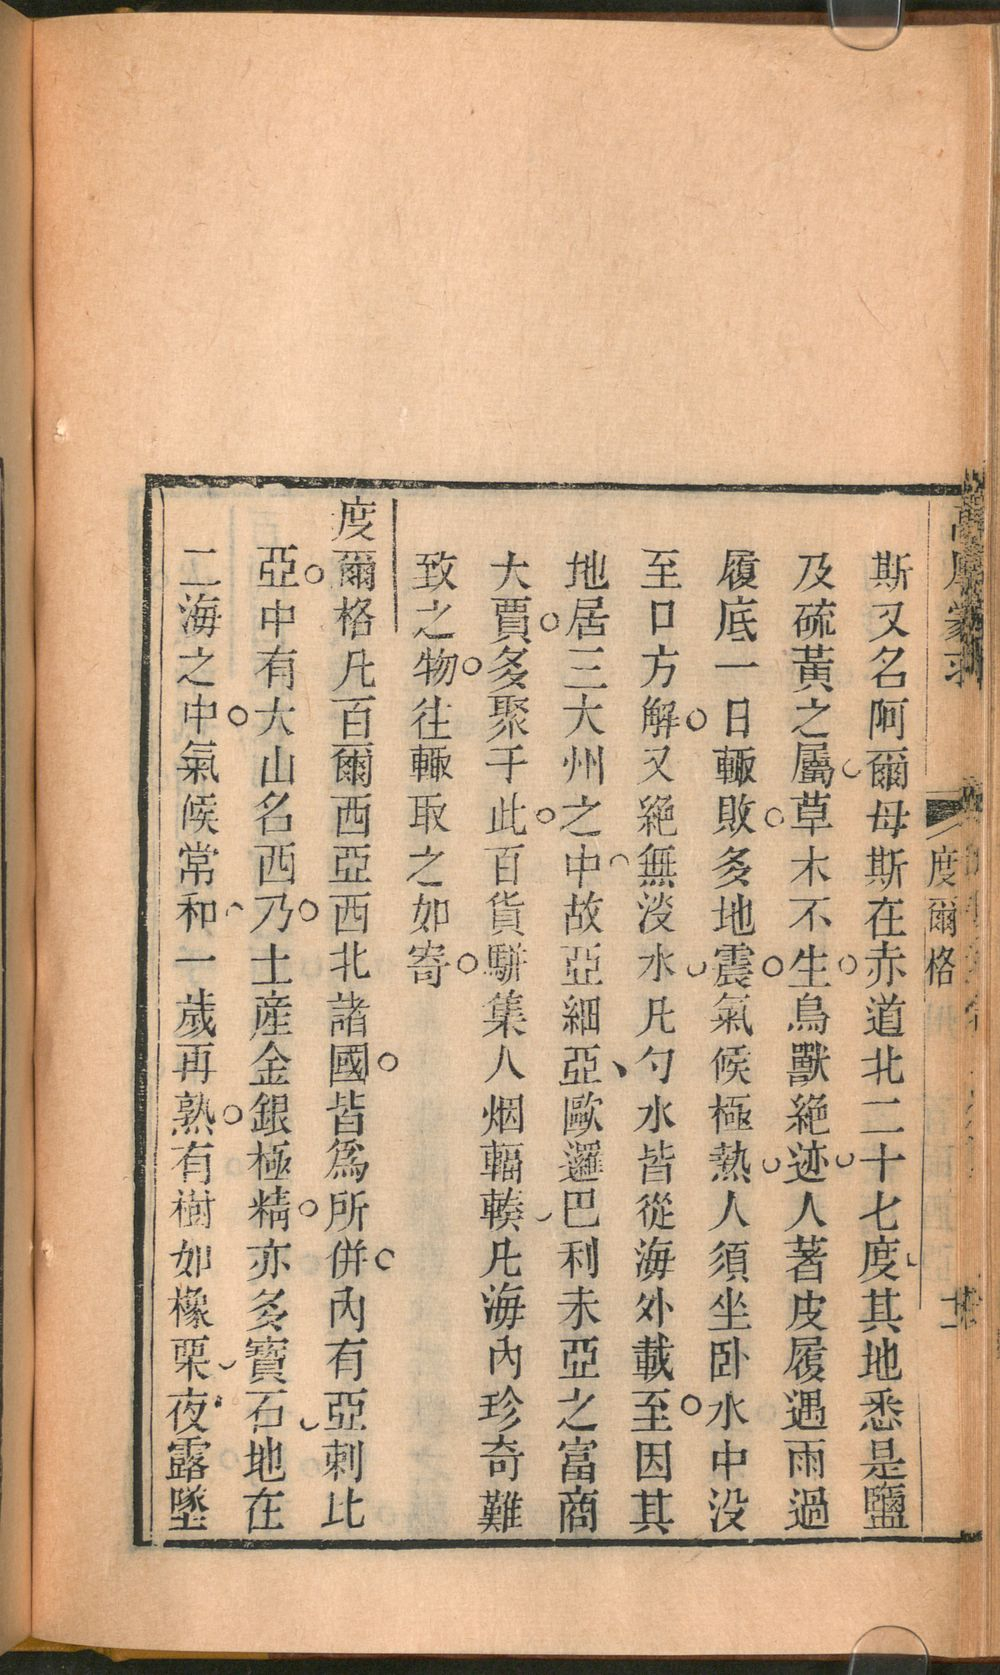 度爾格
斯又名阿爾母斯在赤道北二十七度其地悉是鹽
及硫黃之屬草木不生鳥獸絶迹人著皮履遇雨過
履底一日輙敗多地震氣候極熱人須坐卧水中没
至口方解又絶無淡水凡勺水皆從海外載至因其
地居三大州之中故亞細亞歐邏巴利未亞之富商
大賈多聚于此百貨駢集人烟輻輳凡海內珍奇難
致之物往輙取之如寄
度爾格凡百爾西亞西北諸國皆爲所併內有亞剌比
亞中有大山名西乃土産金銀極精亦多寶石地在
二海之中氣候常和一歲再熟有樹如橡栗夜露墜